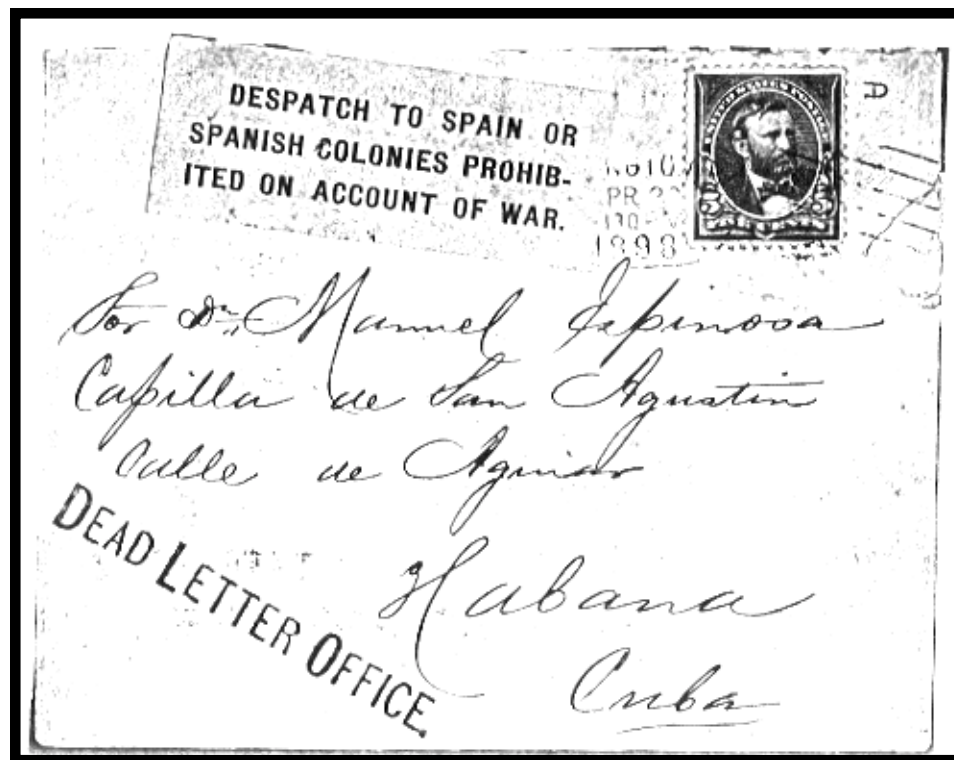 DESPATCH TO SPAIN OR
SPANISH COLONIES PROHIB-
ITED ON ACCOUNT OF WAR.
UNITED STATES POSTAGE
5 5
D
PR
130
1898
Sor Dn Manuel Espinosa
Capilla de San Agustin
Calle de Aguiar
Habana
Cuba
DEAD LETTER OFFICE.